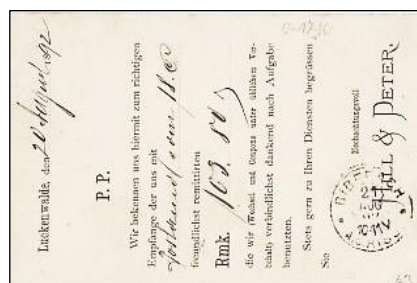 Luckenwalde, den 20 August 1892
P. P.
Wir bekennen uns hiermit zum richtigen
Empfange der uns mit
vom 18. cr
freundlichst remittirten
Rmk. 103. 80
die wir (Wechsel und Coupons unter üblichem Vor-
behalt) verbindlichst dankend nach Aufgabe
benutzten.
Stets gern zu Ihren Diensten begrüssen
Sie
Hochachtungsvoll
& PETER.